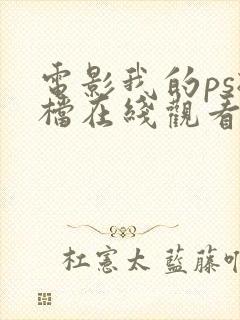 電影我的ps
檔在綫觀看
杜憲太 藍藤